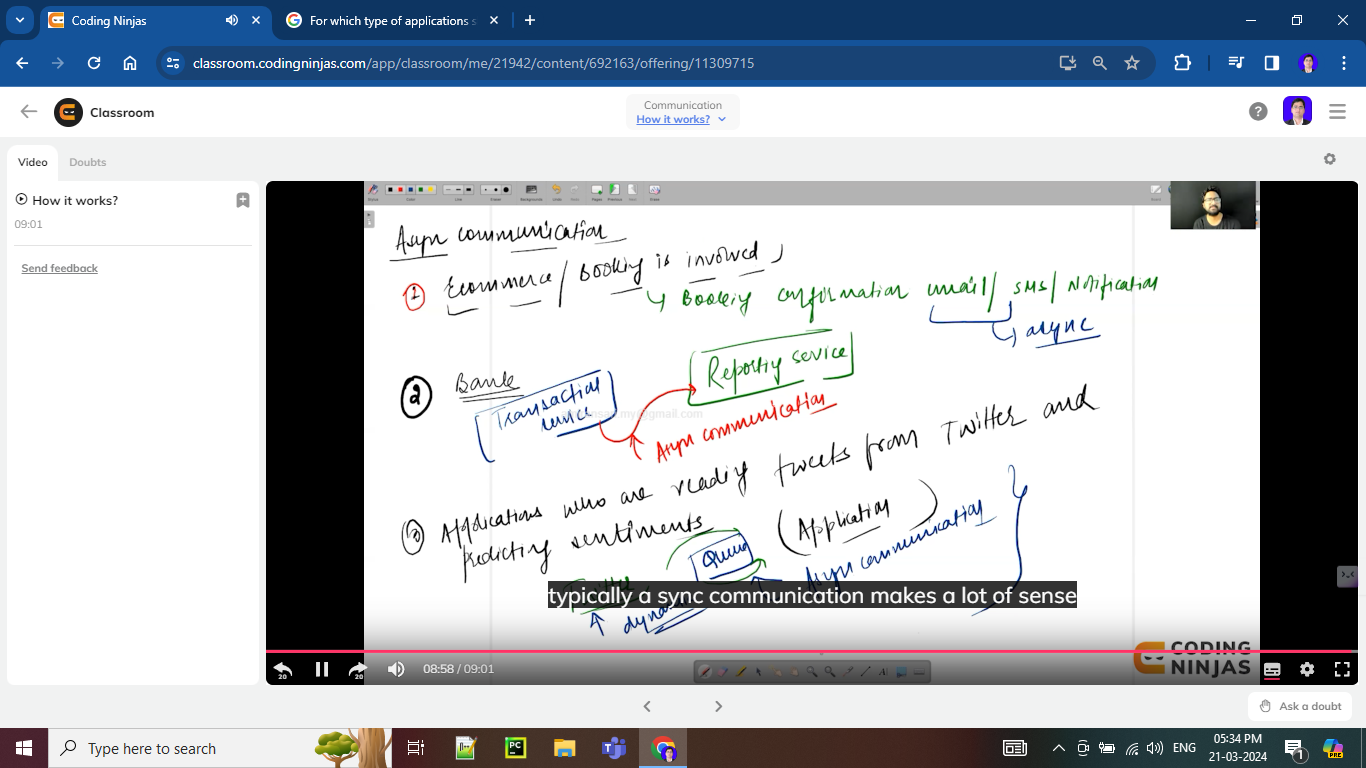 Coding Ninjas
For which type of applications s
classroom.codingninjas.com/app/classroom/me/21942/content/692163/offering/11309715
Classroom
Communication
How it works?
Video
Doubts
How it works?
09:01
Send feedback
Asyn communication
1 Ecommerce / Booking is involved
Booking confirmation email / SMS / Notification
async
2 Bank
Transaction service
Reporting service
Asyn communication
3 Applications who are reading tweets from Twitter and
predicting sentiments
(Application)
Queue
Asyn communication
typically a sync communication makes a lot of sense
CODING
NINJAS
20
20
08:58 / 09:01
Ask a doubt
Type here to search
ENG
05:34 PM
21-03-2024
1
PRE